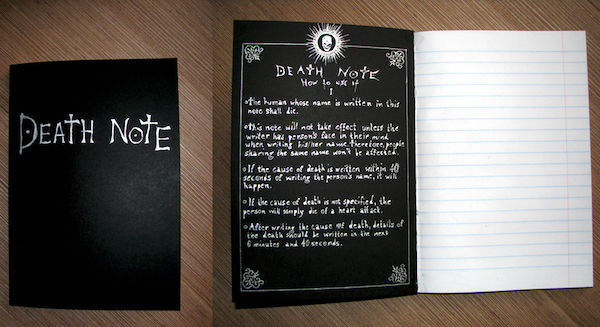 DEATH NOTE
DEATH NOTE
How to use it
I
The human whose name is written in this
note shall die.
This note will not take effect unless the
writer has person's face in their mind
when writing his/her name. therefore, people
sharing the same name won't be affected.
If the cause of death is written within 40
seconds of writing the person's name, it will
happen.
If the cause of death is not specified, the
person will simply die of a heart attack.
After writing the cause of death, details of
the death should be written in the next
6 minutes and 40 seconds.